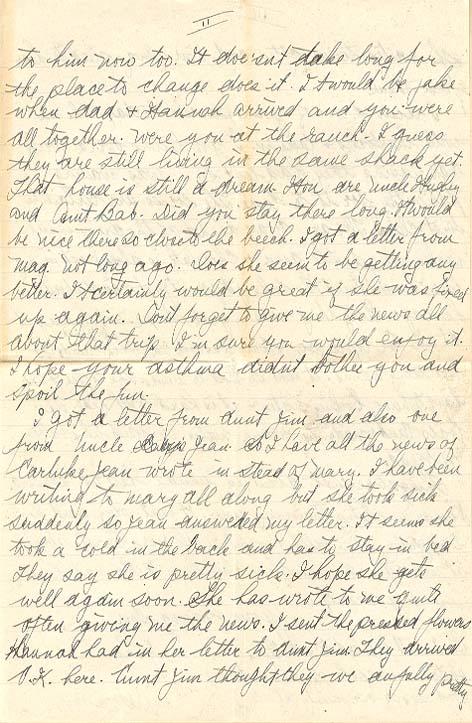 11
to him now too. It doesn't take long for
the place to change does it. It would be jake
when dad & Hannah arrived and you were
all together. Were you at the ranch. I guess
they are still living in the same shack yet.
That house is still a dream. How are Uncle Hughy
and Aunt Bab. Did you stay there long. It would
be nice there so close to the beech. I got a letter from
Mag. not long ago. Does she seem to be getting any
better. It certainly would be great if she was fixed
up again. Dont forget to give me the news all
about that trip. I'm sure you would enjoy it.
I hope your asthma didnt bother you and
spoil the fun.
I got a letter from aunt Jim and also one
from Uncle Jean. So I have all the news of
Carluke. Jean wrote in stead of Mary. I have been
writing to mary all along but she took sick
suddenly so Jean answered my letter. It seems she
took a cold in the back and has to stay in bed
They say she is pretty sick. I hope she gets
well again soon. She has wrote to me quite
often giving me the news. I sent the pressed flowers
Hannah had in her letter to aunt Jim. They arrived
O.K. here. Aunt Jim thought they we awfully pretty